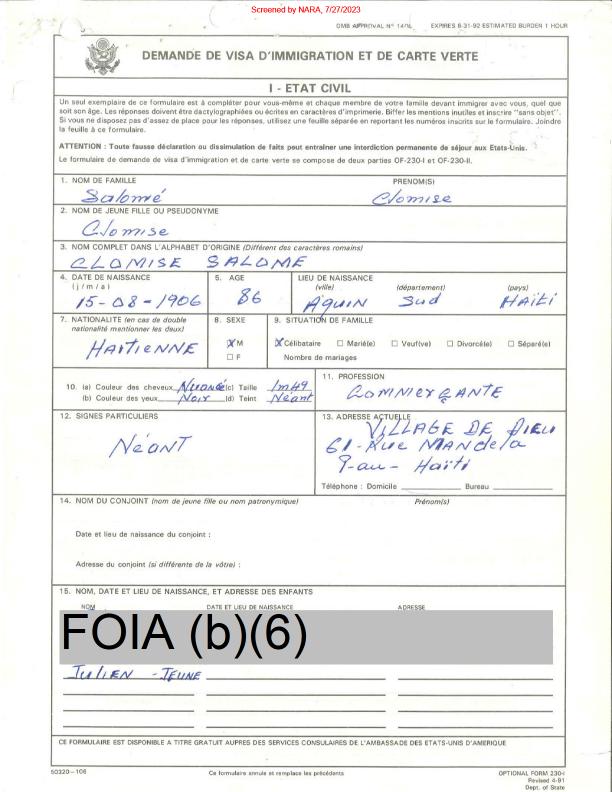 Screened by NARA, 7/27/2023
OMB APPROVAL N° 1405 EXPIRES 8-31-92 ESTIMATED BURDEN 1 HOUR
DEMANDE DE VISA D'IMMIGRATION ET DE CARTE VERTE
I - ETAT CIVIL
Un seul exemplaire de ce formulaire est à compléter pour vous-même et chaque membre de votre famille devant immigrer avec vous, quel que
soit son âge. Les réponses doivent être dactylographiées ou écrites en caractères d'imprimerie. Biffer les mentions inutiles et inscrire "sans objet".
Si vous ne disposez pas d'assez de place pour les réponses, utilisez une feuille séparée en reportant les numéros inscrits sur le formulaire. Joindre
la feuille à ce formulaire.
ATTENTION : Toute fausse déclaration ou dissimulation de faits peut entraîner une interdiction permanente de séjour aux Etats-Unis.
Le formulaire de demande de visa d'immigration et de carte verte se compose de deux parties OF-230-I et OF-230-II.
1. NOM DE FAMILLE PRENOM(S)
Salomé Clomise
2. NOM DE JEUNE FILLE OU PSEUDONYME
Clomise
3. NOM COMPLET DANS L'ALPHABET D'ORIGINE (Différent des caractères romains)
CLOMISE SALOME
4. DATE DE NAISSANCE 5. AGE LIEU DE NAISSANCE
(j / m / a) (ville) (département) (pays)
15-08-1906 86 AQUIN Sud HAÏTI
7. NATIONALITÉ (en cas de double 8. SEXE 9. SITUATION DE FAMILLE
nationalité mentionner les deux)
HAITIENNE X M X Célibataire ☐ Marié(e) ☐ Veuf(ve) ☐ Divorcé(e) ☐ Séparé(e)
☐ F Nombre de mariages
10. (a) Couleur des cheveux Nuancé (c) Taille 1m49 11. PROFESSION
(b) Couleur des yeux Noir (d) Teint Néant COMMERÇANTE
12. SIGNES PARTICULIERS 13. ADRESSE ACTUELLE
NÉANT VILLAGE DE DIEU
61-Rue MANdela
P-au- Haïti
Téléphone : Domicile Bureau
14. NOM DU CONJOINT (nom de jeune fille ou nom patronymique) Prénom(s)
Date et lieu de naissance du conjoint :
Adresse du conjoint (si différente de la vôtre) :
15. NOM, DATE ET LIEU DE NAISSANCE, ET ADRESSE DES ENFANTS
NOM DATE ET LIEU DE NAISSANCE ADRESSE
FOIA (b)(6)
JULIEN -JEUNE
CE FORMULAIRE EST DISPONIBLE A TITRE GRATUIT AUPRES DES SERVICES CONSULAIRES DE L'AMBASSADE DES ETATS-UNIS D'AMERIQUE
50320-106 Ce formulaire annule et remplace les précédents OPTIONAL FORM 230-I
Revised 4-91
Dept. of State